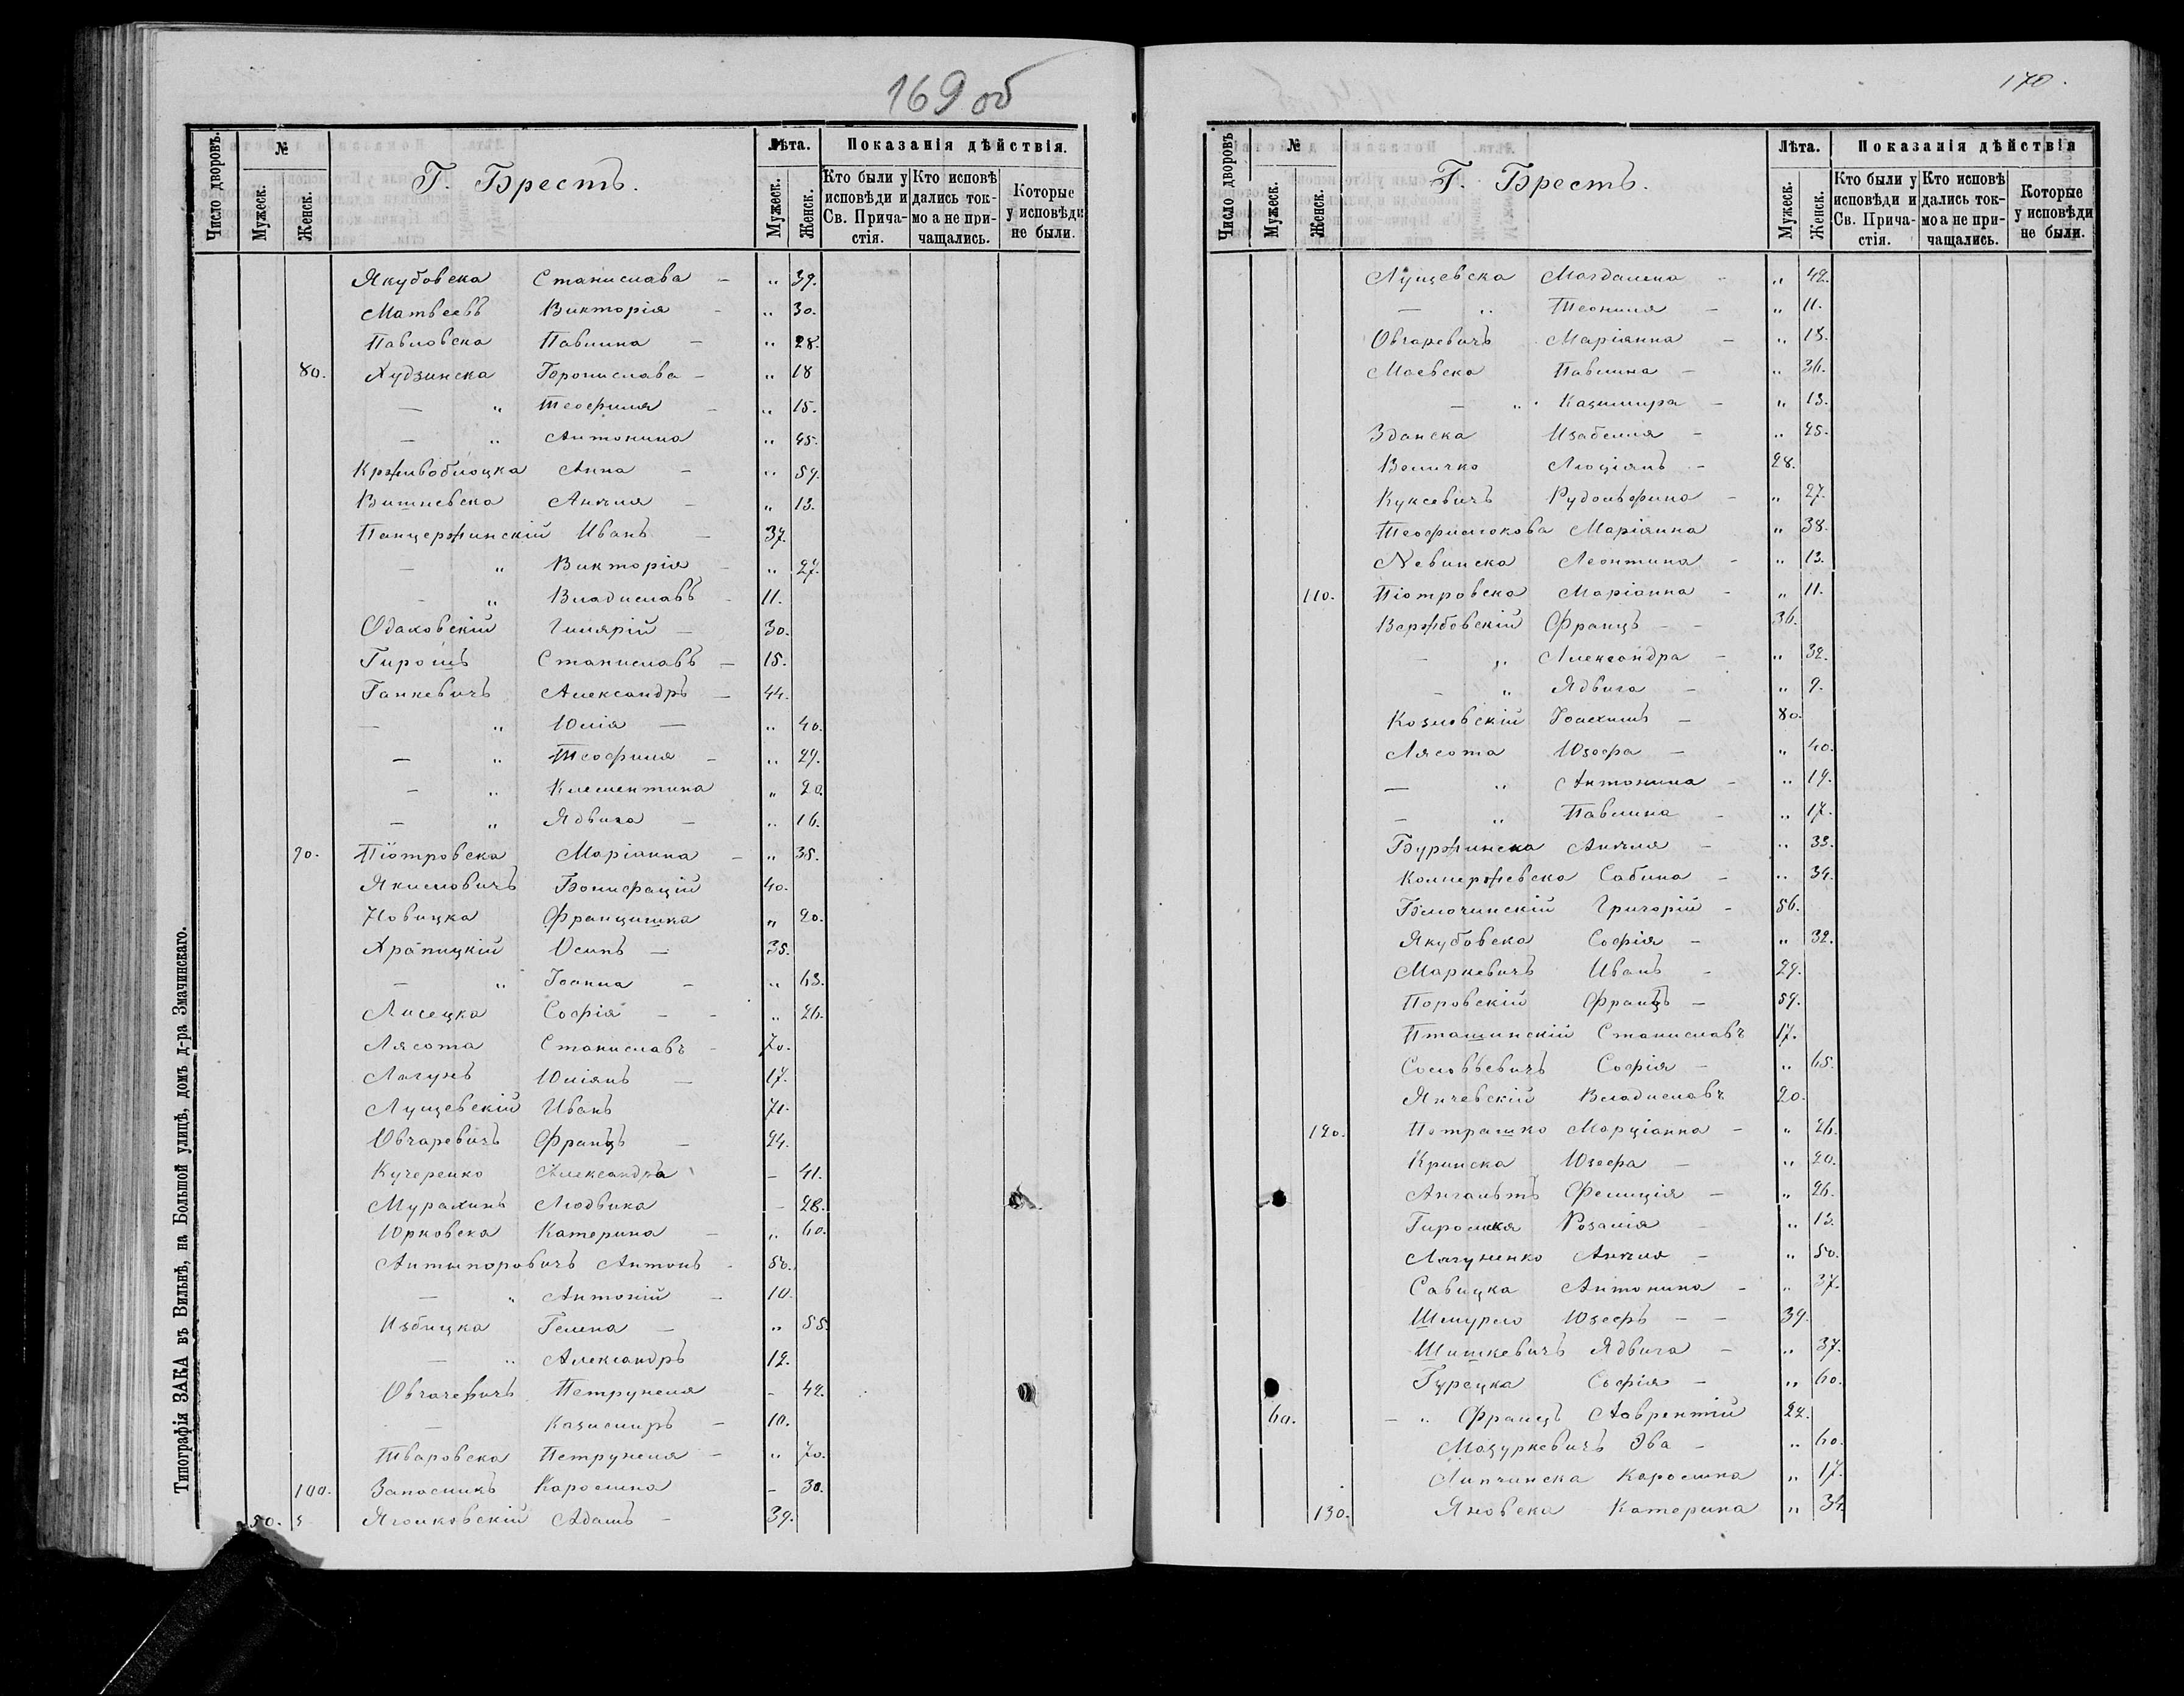 169 об
Число дворовъ.
№
Мужеск.
Женск.
Г. Брестъ.
Лѣта.
Мужеск.
Женск.
Показанія дѣйствія.
Кто были у исповѣди и Св. Прича-стія.
Кто исповѣ дались ток-мо а не при-чащались.
Которые у исповѣди не были.
Якубовска Станислава — „ 39.
Матвеевъ Викторія - „ 30.
Павловска Павлина — „ 28.
80. Худзинска Бронислава — „ 18
— „ Теофиля - „ 15.
— „ Антонина „ 45.
Крживоблоцка Анна - „ 59.
Вишневска Анѣля - „ 13.
Панцержинскій Иванъ — 37.
— „ Викторія - „ 27.
- „ Владиславъ - 11.
Одаховскій Гилярій — 30.
Гирошъ Станиславъ — 15.
Ганкевичъ Александръ — 44.
— „ Юлія — „ 40.
— „ Теофиля - „ 29.
— „ Клементина „ 20.
— „ Ядвига — „ 16.
90. Піотровска Маріанна — „ 35.
Якимовичъ Бонифацій 40.
Новицка Францишка „ 20.
Храпицкій Осипъ — 35.
— „ Іоанна - „ 63.
Лисецка Софія - - „ 26.
Лясота Станиславъ - 70.
Лагунъ Юліянъ — 17.
Лущевскій Иванъ 71.
Овчаревичъ Францъ — 24.
Кучеренко Александра — 41.
Мурахинъ Людвика — 28.
Юрковска Катерина — „ 60.
Антыпоровичъ Антонъ - 50.
— „ Антоній — 10.
Избицка Гелена — „ 55.
— „ Александръ 12.
Овчачевичъ Петрунеля - 42.
— Казимиръ — 10.
Тваровска Петрунеля — „ 70.
100. Запасникъ Каролина — 30.
50. Яголковскій Адамъ — 39.
Типографія ЗАКА въ Вильнѣ, на Большой улицѣ, домъ д-ра Змачинскаго.
170.
Число дворовъ
№
Мужеск.
Женск.
Г. Брестъ.
Лѣта.
Мужеск.
Женск.
Показанія дѣйствія
Кто были у исповѣди и Св. Прича-стія.
Кто исповѣ дались ток-мо а не при-чащались.
Которые у исповѣди не были.
Лущевска Магдалена - „ 42.
— „ Теониля — „ 11.
Овчаревичъ Маріянна — „ 13.
Маевска Павлина — „ 36.
— „ Казимира — „ 13.
Зданска Изабелля — „ 25.
Величко Люціянъ — 28.
Куксевичъ Рудольфина — „ 27.
Теофилокова Маріянна „ 38.
Невинска Леонтина - „ 13.
110. Піотровска Маріанна - „ 11.
Вержбовскій Францъ - - 36.
— „ Александра — „ 32.
— „ Ядвига — „ 9.
Козловскій Іоахимъ — 80.
Лясота Юзефа — „ 40.
— „ Антонина - „ 19.
— „ Павлина - „ 17.
Буржинска Анѣля - „ 33.
Компержевска Сабина - „ 34.
Блючинскій Григорій - 56.
Якубовска Софія - „ 32.
Маркевичъ Иванъ - 29.
Поровскій Францъ — 59.
Пташинскій Станиславъ 17.
Соловьевичъ Софія - „ 65.
Янчевскій Владиславъ 20.
120. Потрашко Марціанна — „ 26.
Кринска Юзефа — „ 20.
Фелиція — „ 26.
Розалія - „ 13.
Лагуненко Анѣля — „ 50.
Савицка Антонина - „ 37.
Шемурло Юзефъ - - 39.
Шишкевичъ Ядвига — „ 37.
Гурецка Софія — „ 60.
60. — „ Францъ Лаврентій 22.
Мазуркевичъ Эва - „ 60.
Липчинска Каролина „ 17.
130. Яновска Катерина „ 34